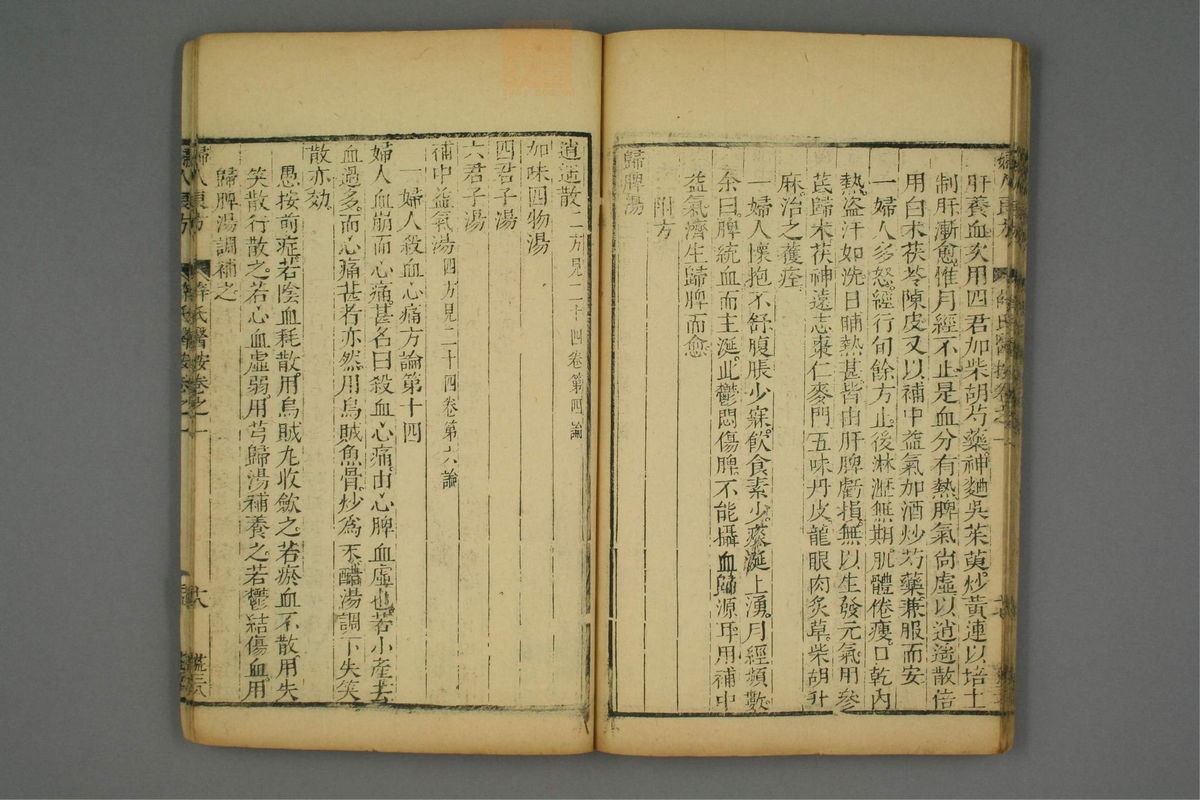 肝養血矣用四君加柴胡芍藥神麯吳茱萸炒黃連以培土
制肝漸愈惟月經不止是血分有熱脾氣尚虛以逍遙散倍
用白朮茯苓陳皮又以補中益氣加酒炒芍藥兼服而安
一婦人多怒經行旬餘方止後淋瀝無期肌體倦瘦口乾內
熱盜汗如洗日晡熱甚皆由肝脾虧損無以生發元氣用參
芪歸朮茯神遠志棗仁麥門五味丹皮龍眼肉炙草柴胡升
麻治之獲痊
一婦人懷抱不舒腹脹少寐飲食素少痰涎上湧月經頻數
余曰脾統血而主涎此鬱悶傷脾不能攝血歸源耳用補中
益氣濟生歸脾而愈
附方
歸脾湯
逍遙散二方見二十四卷第四論
加味四物湯
四君子湯
六君子湯
補中益氣湯四方見二十四卷第六論
一婦人殺血心痛方論第十四
婦人血崩而心痛甚名曰殺血心痛由心脾血虛也若小產去
血過多而心痛甚者亦然用烏賊魚骨炒為末醋湯調下失笑
散亦効
愚按前症若陰血耗散用烏賊丸收斂之若瘀血不散用失
笑散行散之若心血虛弱用芎歸湯補養之若鬱結傷血用
歸脾湯調補之
婦人良方 薛氏醫按卷之一 十八